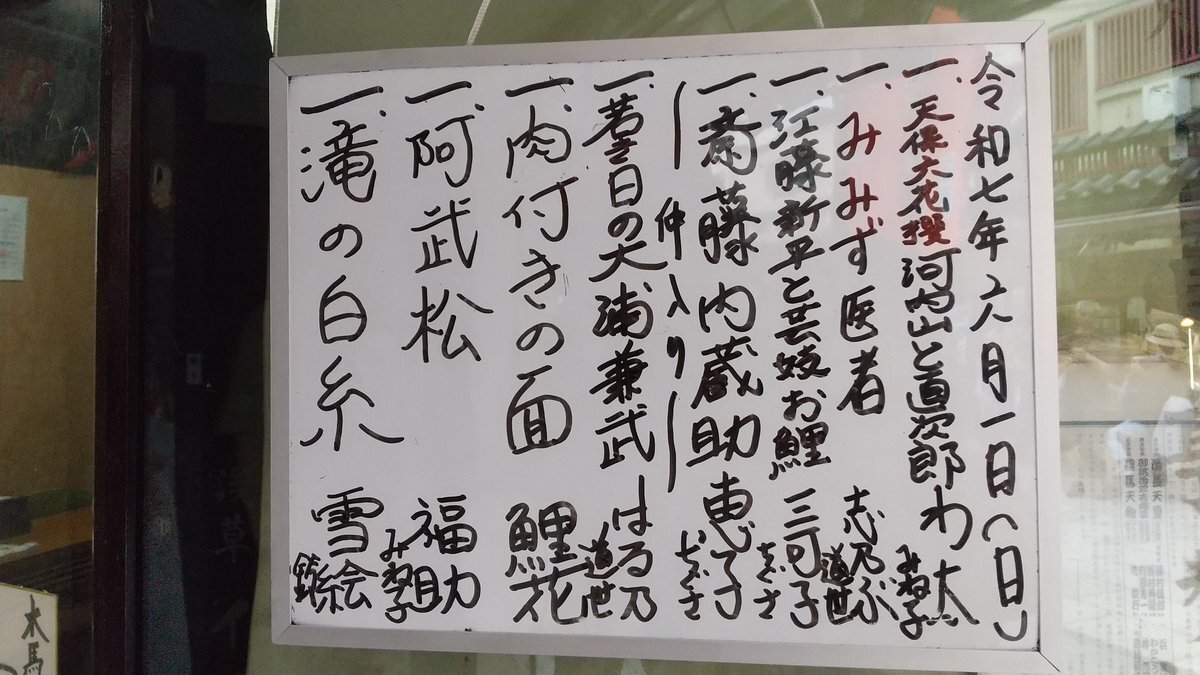 令和七年六月一日(日)
一、天保六花撰 河内山と直次郎 わ太 みね子
一、みみず医者 志乃ぶ 道世
一、江藤新平と芸妓お鯉 三可子 ちぐさ
一、斎藤内蔵助 恵子 ちぐさ
―仲入り―
一、若き日の大浦兼武 はる乃 道世
一、肉付きの面 鯉花
一、阿武松 福助 みね子
一、滝の白糸 雪絵
木馬